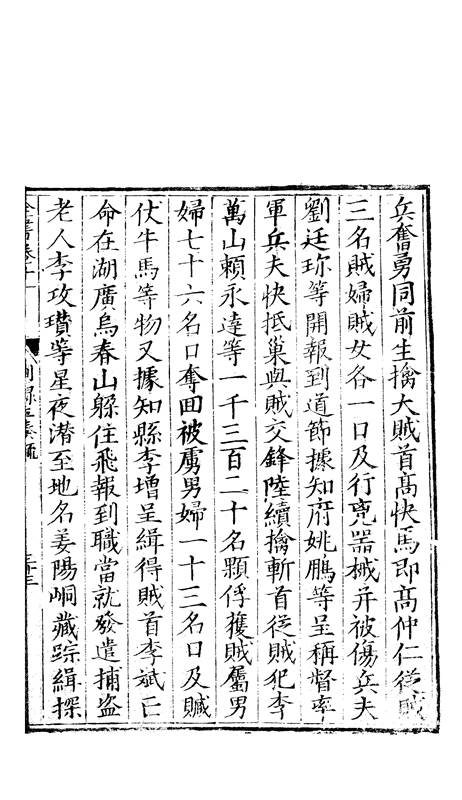 兵奮勇同前生擒大賊首高快馬即高仲仁從賊
三名賊婦賊女各一口及行兇器械并被傷兵夫
劉廷珎等開報到道節據知府姚鵬等呈稱督率
軍兵夫快抵巢與賊交鋒陸續擒斬首從賊犯李
萬山賴永達等一千三百二十名顆俘獲賊屬男
婦七十六名口奪回被虜男婦一十三名口及贓
仗牛馬等物又據知縣李增呈緝得賊首李斌亡
命在湖廣烏春山躲住飛報到職當就發遣捕盜
老人李攻瓚等星夜潛至地名姜陽峒藏踪緝探
全書卷十
別錄二奏疏